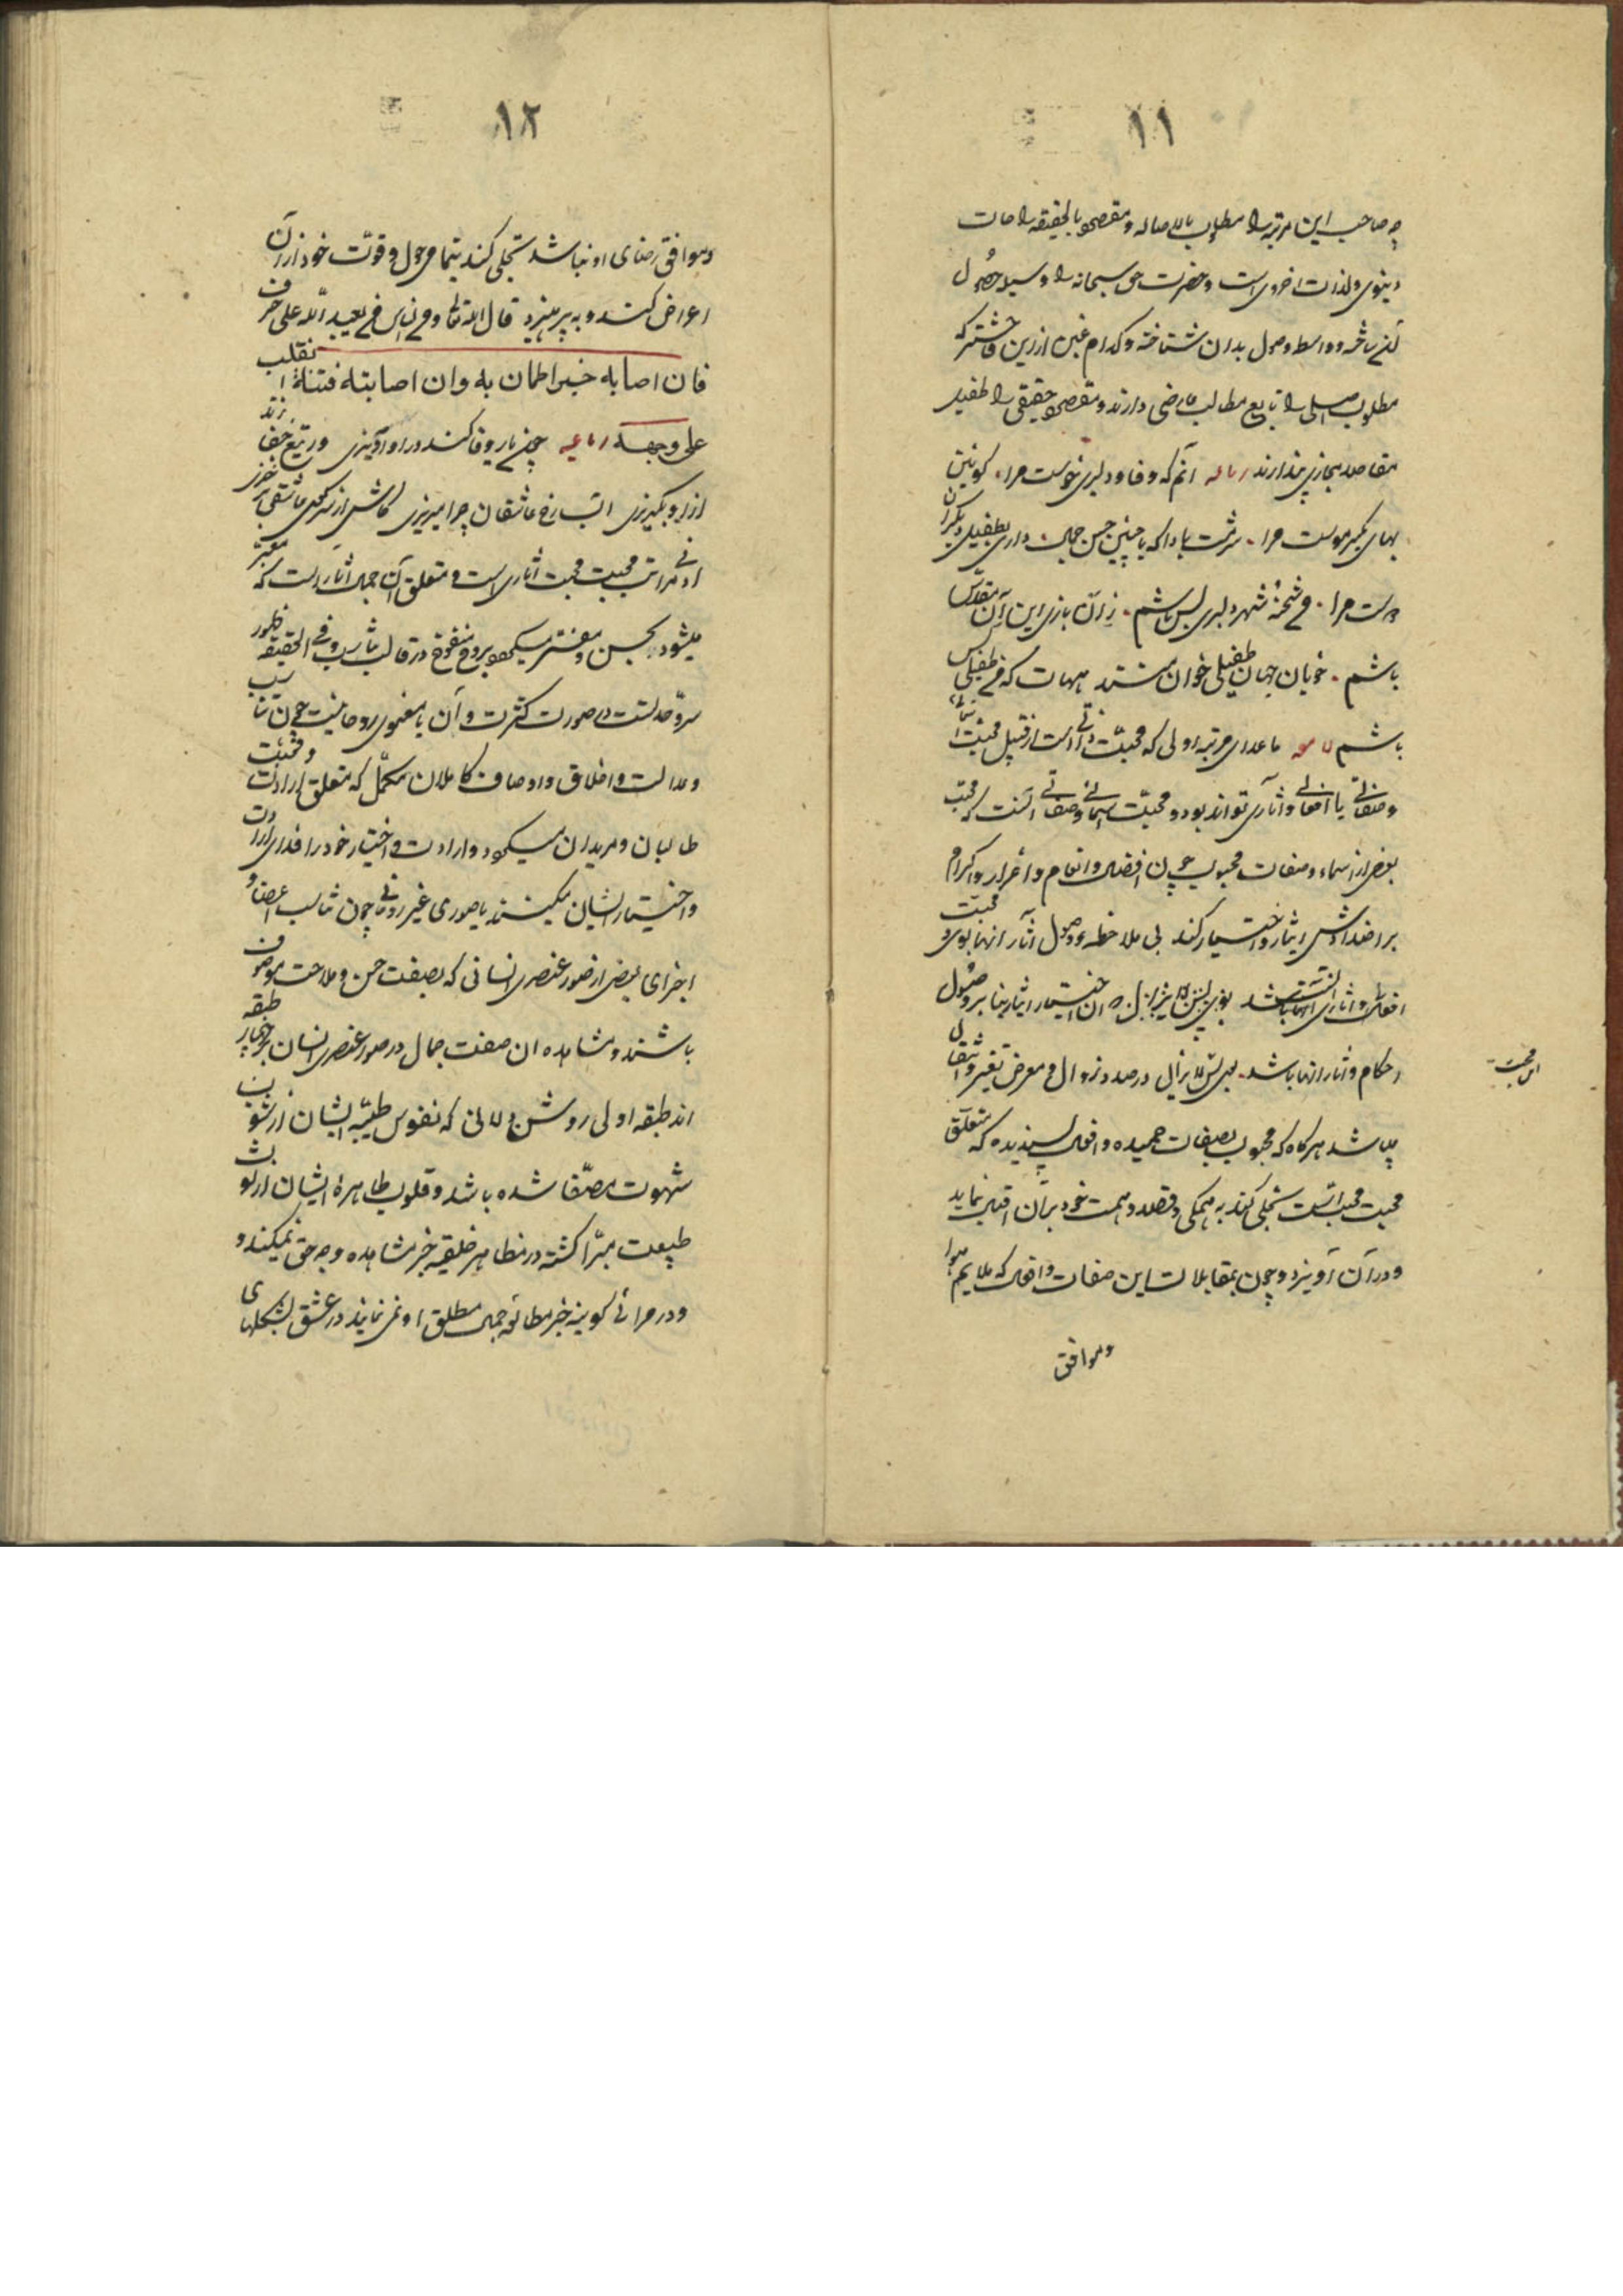 ۱۱
چه صاحب این مرتبه را مطلوب بالاصاله و مقصود بالحقیقه راحات
دینوی و لذات اخروی است و حضرت حق سبحانه را وسیله حصول
آن ساخته و واسطه وصول بدان شناخته و کدام غبن ازین فاحشتر که
مطلوب اصلی را تابع مطالب عارضی دارند و مقصود حقیقی را طفیل
مقاصد مجازی پندارند رباعیه آنم که وفا و دلبری خوست مرا کونین
بهای یکسر موست مرا شرمت بادا که با چنین حسن و جمال داری بطفیل دیگران
دوست مرا فی شحنهٔ شهر دلبری بس باشم زان بازی این و آن مقدس
باشم خوبان جهان طفیلی خوان منند هیهات که من طفیلی کس
باشم لامعه ماعدای مرتبه اولی که محبت ذاتی است از قبیل محبت اسمائی
و صفاتی یا افعالی و آثاری تواند بود و محبت اسمائی و صفاتی آنست که محب
بعضی از اسماء و صفات محبوب چون افضال و انعام و اعزاز و اکرام
بر اضدادش ایثار و اختیار کند بی ملاحظه وصول آثار آنها بوی و محبت
افعالی و آثاری آنست که آن اختیار و ایثار بنا بر وصول
احکام و آثار آنها باشد در صدد زوال و معرض تغیر و انتقال
این محبت
میباشد هرگاه که محبوب بصفات حمیده و افعال پسندیده که متعلق
محبت محب است تجلی کند به همگی و قصد و همت خود بر آن اقبال نماید
و در آن آویزد و چون بمقابلات این صفات و افعال که ملایم هوا
و موافق
۱۲
و موافق رضای او نباشد تجلی کند بتمامی حول و قوت خود از آن
اعراض کند و به پرهیزد قال الله تعالی و من الناس من یعبد الله علی حرف
فان اصابه خیر اطمان به وان اصابته فتنة انقلب
علی وجهه رباعیه چون یار وفا کند در او آویزی ور تیغ جفا زند
ازو بگریزی آب رخ عاشقان چرا میریزی کاش از سر کوی عاشقی برخیزی
ادنی مراتب محبت محبت آثاری است و متعلق آن جمال آثار است که معبر
میشود بحسن و مفسر میگردد بروح منفوخ در قالب تناسب و فی الحقیقه ظهور
سر وحدتست در صورت کثرت و آن یا معنوی روحانیست چون تناسب
و عدالت و اخلاق و اوصاف کاملان مکمل که متعلق ارادت و محبت
طالبان و مریدان میگردد و ارادت و اختیار خود را فدای ارادت
و اختیار ایشان میکنند یا صوری غیر روحانی چون تناسب اعضا و
اجزای بعضی از صور عنصری انسانی که بصفت حسن و ملاحت موصوف
باشند و مشاهده ان صفت جمال در صور عنصری انسان بر چهار طبقه
اند طبقه اولی روشن دلانی که نفوس طیبه ایشان از شوب
شهوت مصفا شده باشد و قلوب طاهرهٔ ایشان از لوث
طبیعت مبرا گشته در مظاهر خلقیه جز مشاهده وجه حق نمیکنند و
و در مرائی کونیه جز مطالعه جمال مطلق او نمی نمایند در عشق بشکلهای